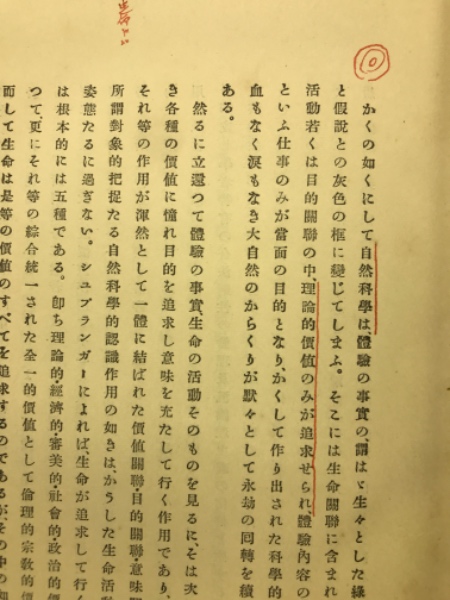 かくの如くにして自然科學は、體驗の事實の、謂はゞ生々とした綠
と假說との灰色の框に變じてしまふ。そこには生命關聯に含まれ
活動若くは目的關聯の中、理論的價値のみが追求せられ、體驗內容の
といふ仕事のみが當面の目的となり、かくして作り出された科學的
血もなく淚もなき大自然のからくりが默々として永劫の回轉を續
ある。
然るに立還つて體驗の事實、生命の活動そのものを見るに、そは大
き各種の價値に憧れ目的を追求し意味を充たして行く作用であり、
それ等の作用が渾然として一體に結ばれた價値關聯・目的關聯・意味關
所謂對象的把捉たる自然科學的認識作用の如きは、かうした生命活動
姿態たるに過ぎない。シュプランガーによれば、生命が追求して行く
は根本的には五種である。卽ち理論的・經濟的・審美的・社會的・政治的の價
つて、更にそれ等の綜合統一された全一的價値として倫理的宗敎的價
而して生命は是等の價値のすべてを追求するのであるが、その中の